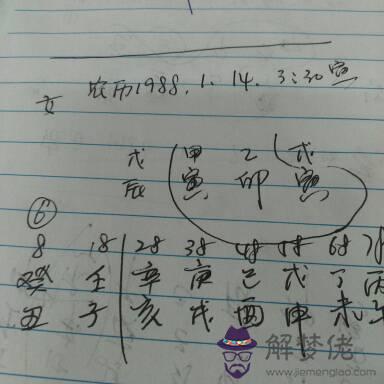 农历1988.1.14. 3:30寅
女
戊 甲 乙 戊
辰 寅 卯 寅
⑥
8 18 28 38 48 58 68 78
癸 壬 辛 庚 己 戊 丁 丙
丑 子 亥 戌 酉 申 未 午
解梦佬
www.jiemenglao.com